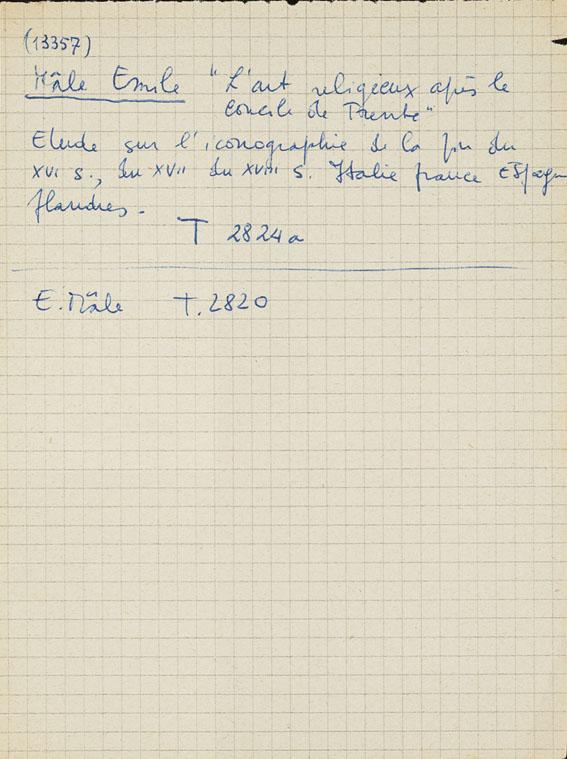 (13357)
Mâle Emile "L'art religieux après le
concile de Trente"
Etude sur l'iconographie de la fin du
XVI s., du XVII du XVIII s. Italie france Espagn
flandres.
T 2824a
E. Mâle T. 2820